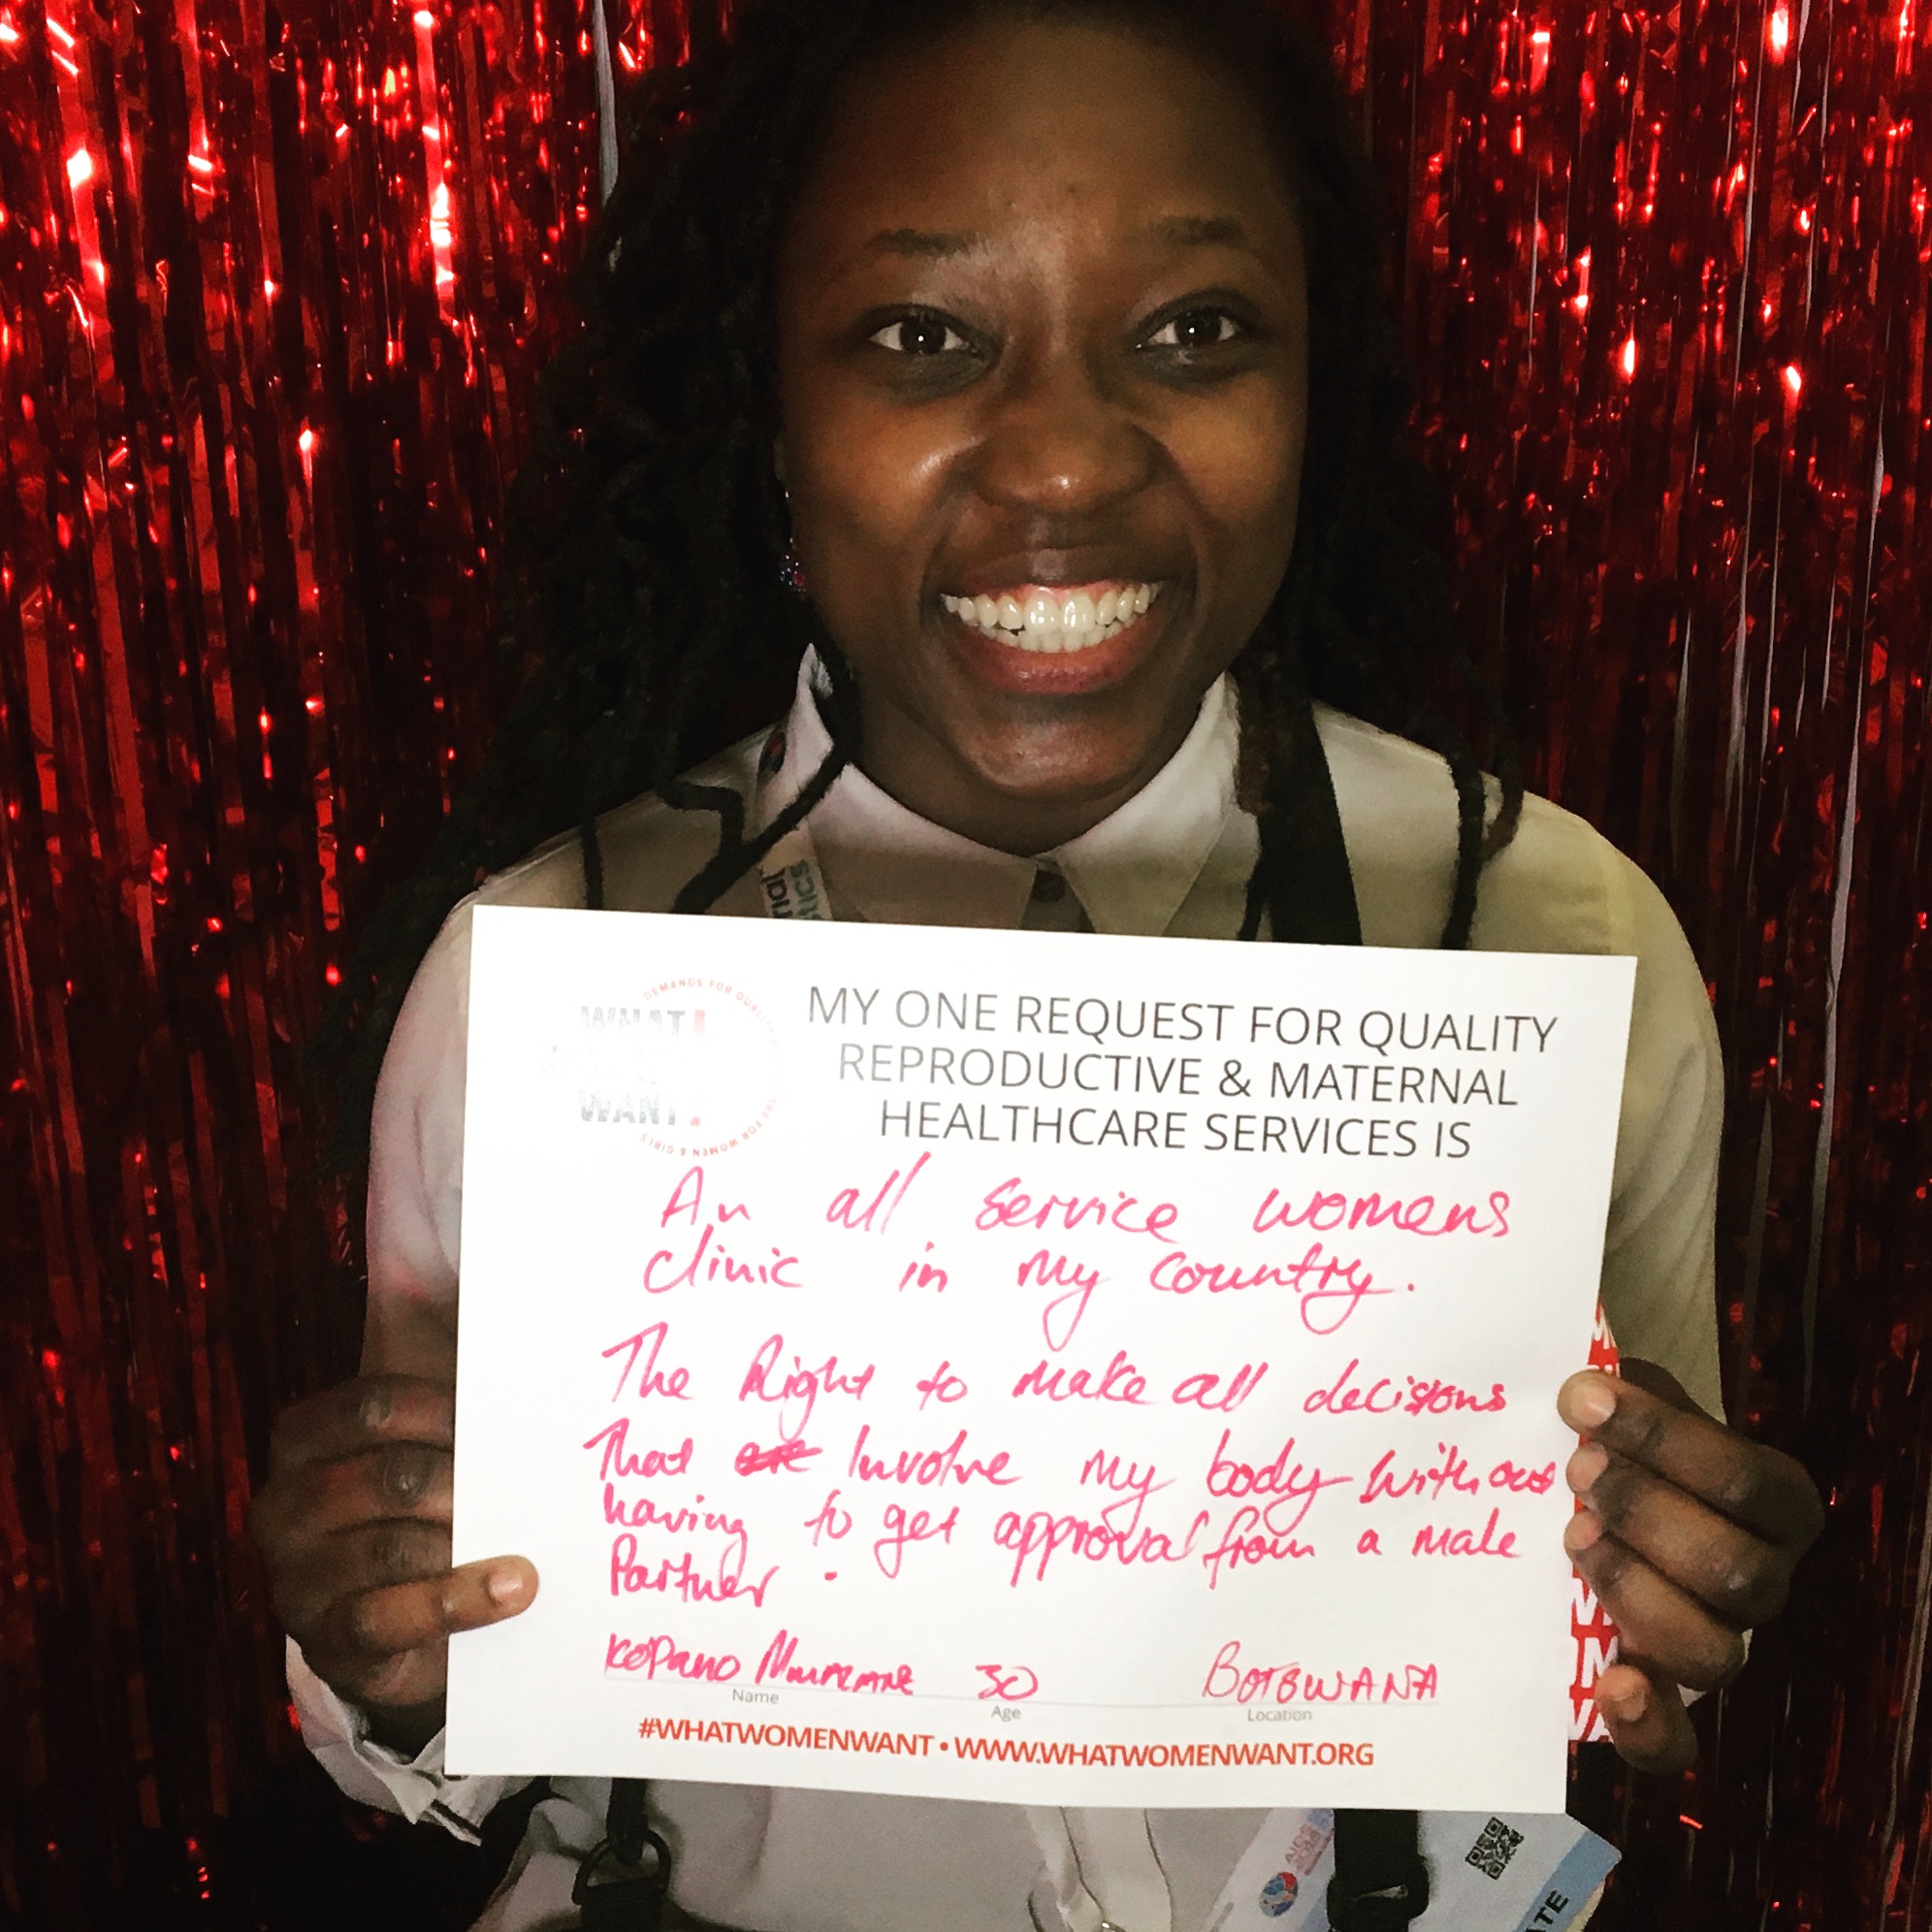 DEMANDS FOR QUALITY
WHAT
WANT!
FOR WOMEN & GIRLS
MY ONE REQUEST FOR QUALITY
REPRODUCTIVE & MATERNAL
HEALTHCARE SERVICES IS
An all service womens
clinic in my country.
The Right to make all decisions
That Involve my body without
having to get approval from a male
Partner.
Kopano 30 BOTSWANA
Name Age Location
#WHATWOMENWANT • WWW.WHATWOMENWANT.ORG
AIDS